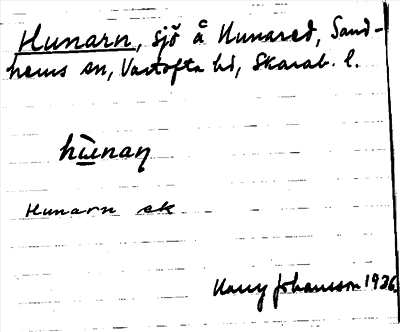 Hunarn, sjö å Hunared, Sand-
hems sn, Vartofta hd, Skarab. l.
hùnaɳ
Hunarn sk
Harry Johansson 1926.